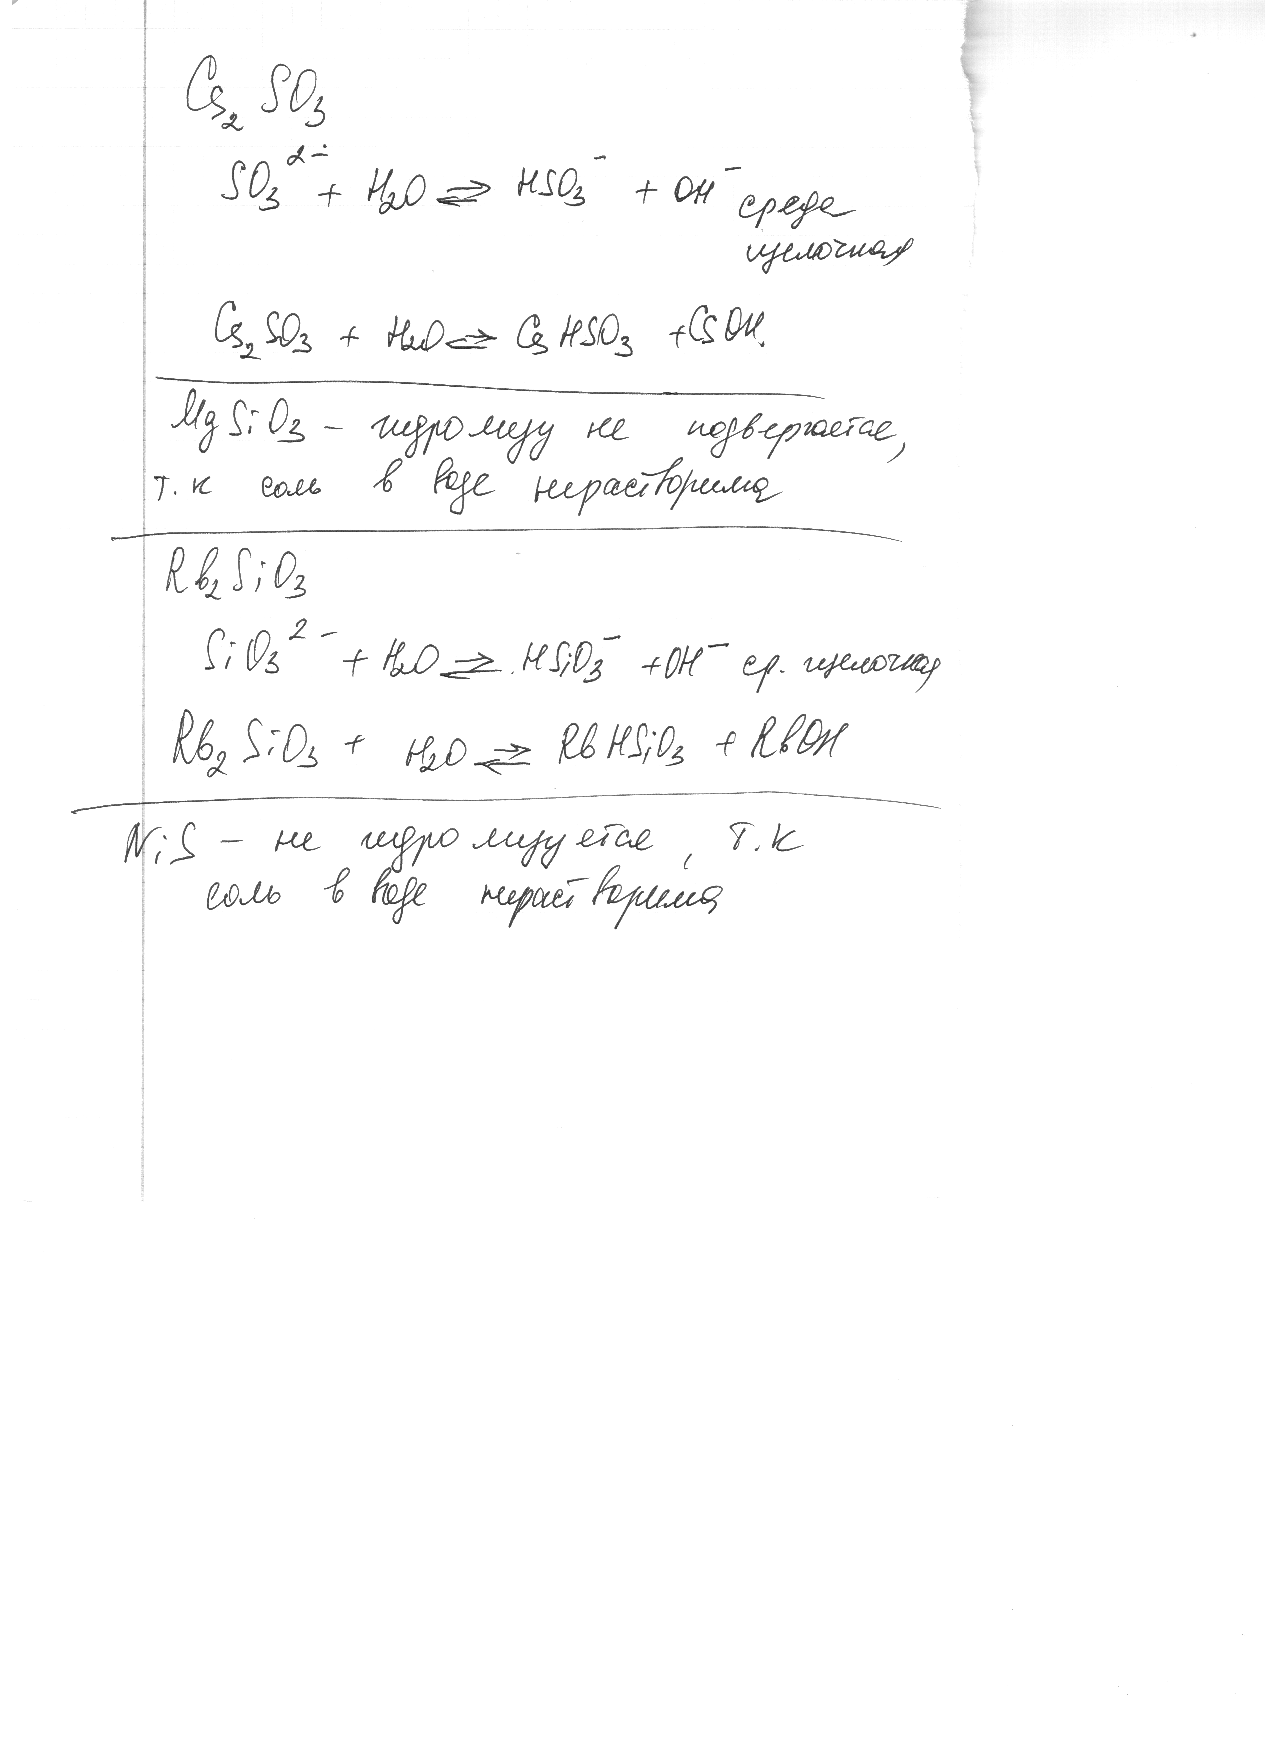 Cs₂SO₃
SO₃²⁻ + H₂O ⇌ HSO₃⁻ + OH⁻ среда
щелочная
Cs₂SO₃ + H₂O ⇌ CsHSO₃ + CsOH.
MgSiO₃ – гидролизу не подвергается,
т.к соль в воде нерастворима
Rb₂SiO₃
SiO₃²⁻ + H₂O ⇌ HSiO₃⁻ + OH⁻ ср. щелочная
Rb₂SiO₃ + H₂O ⇌ RbHSiO₃ + RbOH
NiS – не гидролизуется, т.к
соль в воде нерастворима